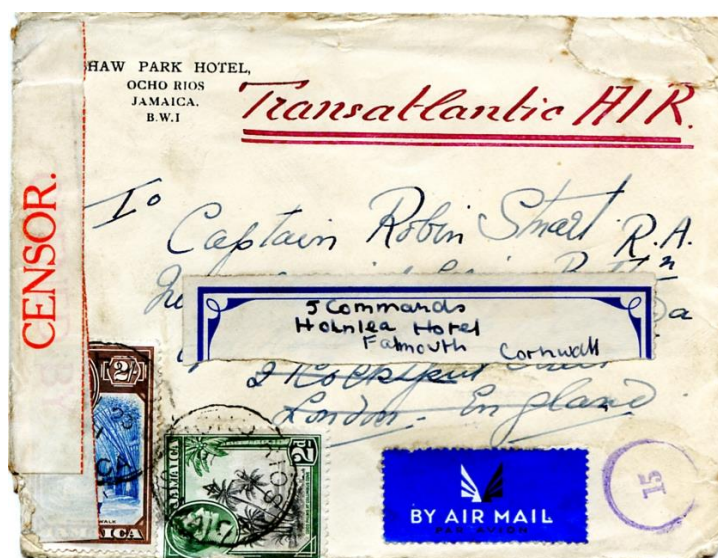 SHAW PARK HOTEL,
OCHO RIOS
JAMAICA.
B.W.I
Transatlantic AIR.
CENSOR.
To
Captain Robin Stuart R.A.
5 Commands
Hornlea Hotel
Falmouth Cornwall
London - England
2/-
JAMAICA
2d
JAMAICA
BY AIR MAIL
PAR AVION
15